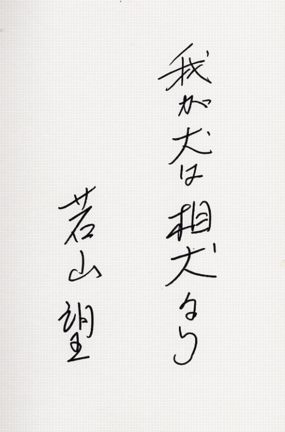 我が犬は相犬なり
若山望